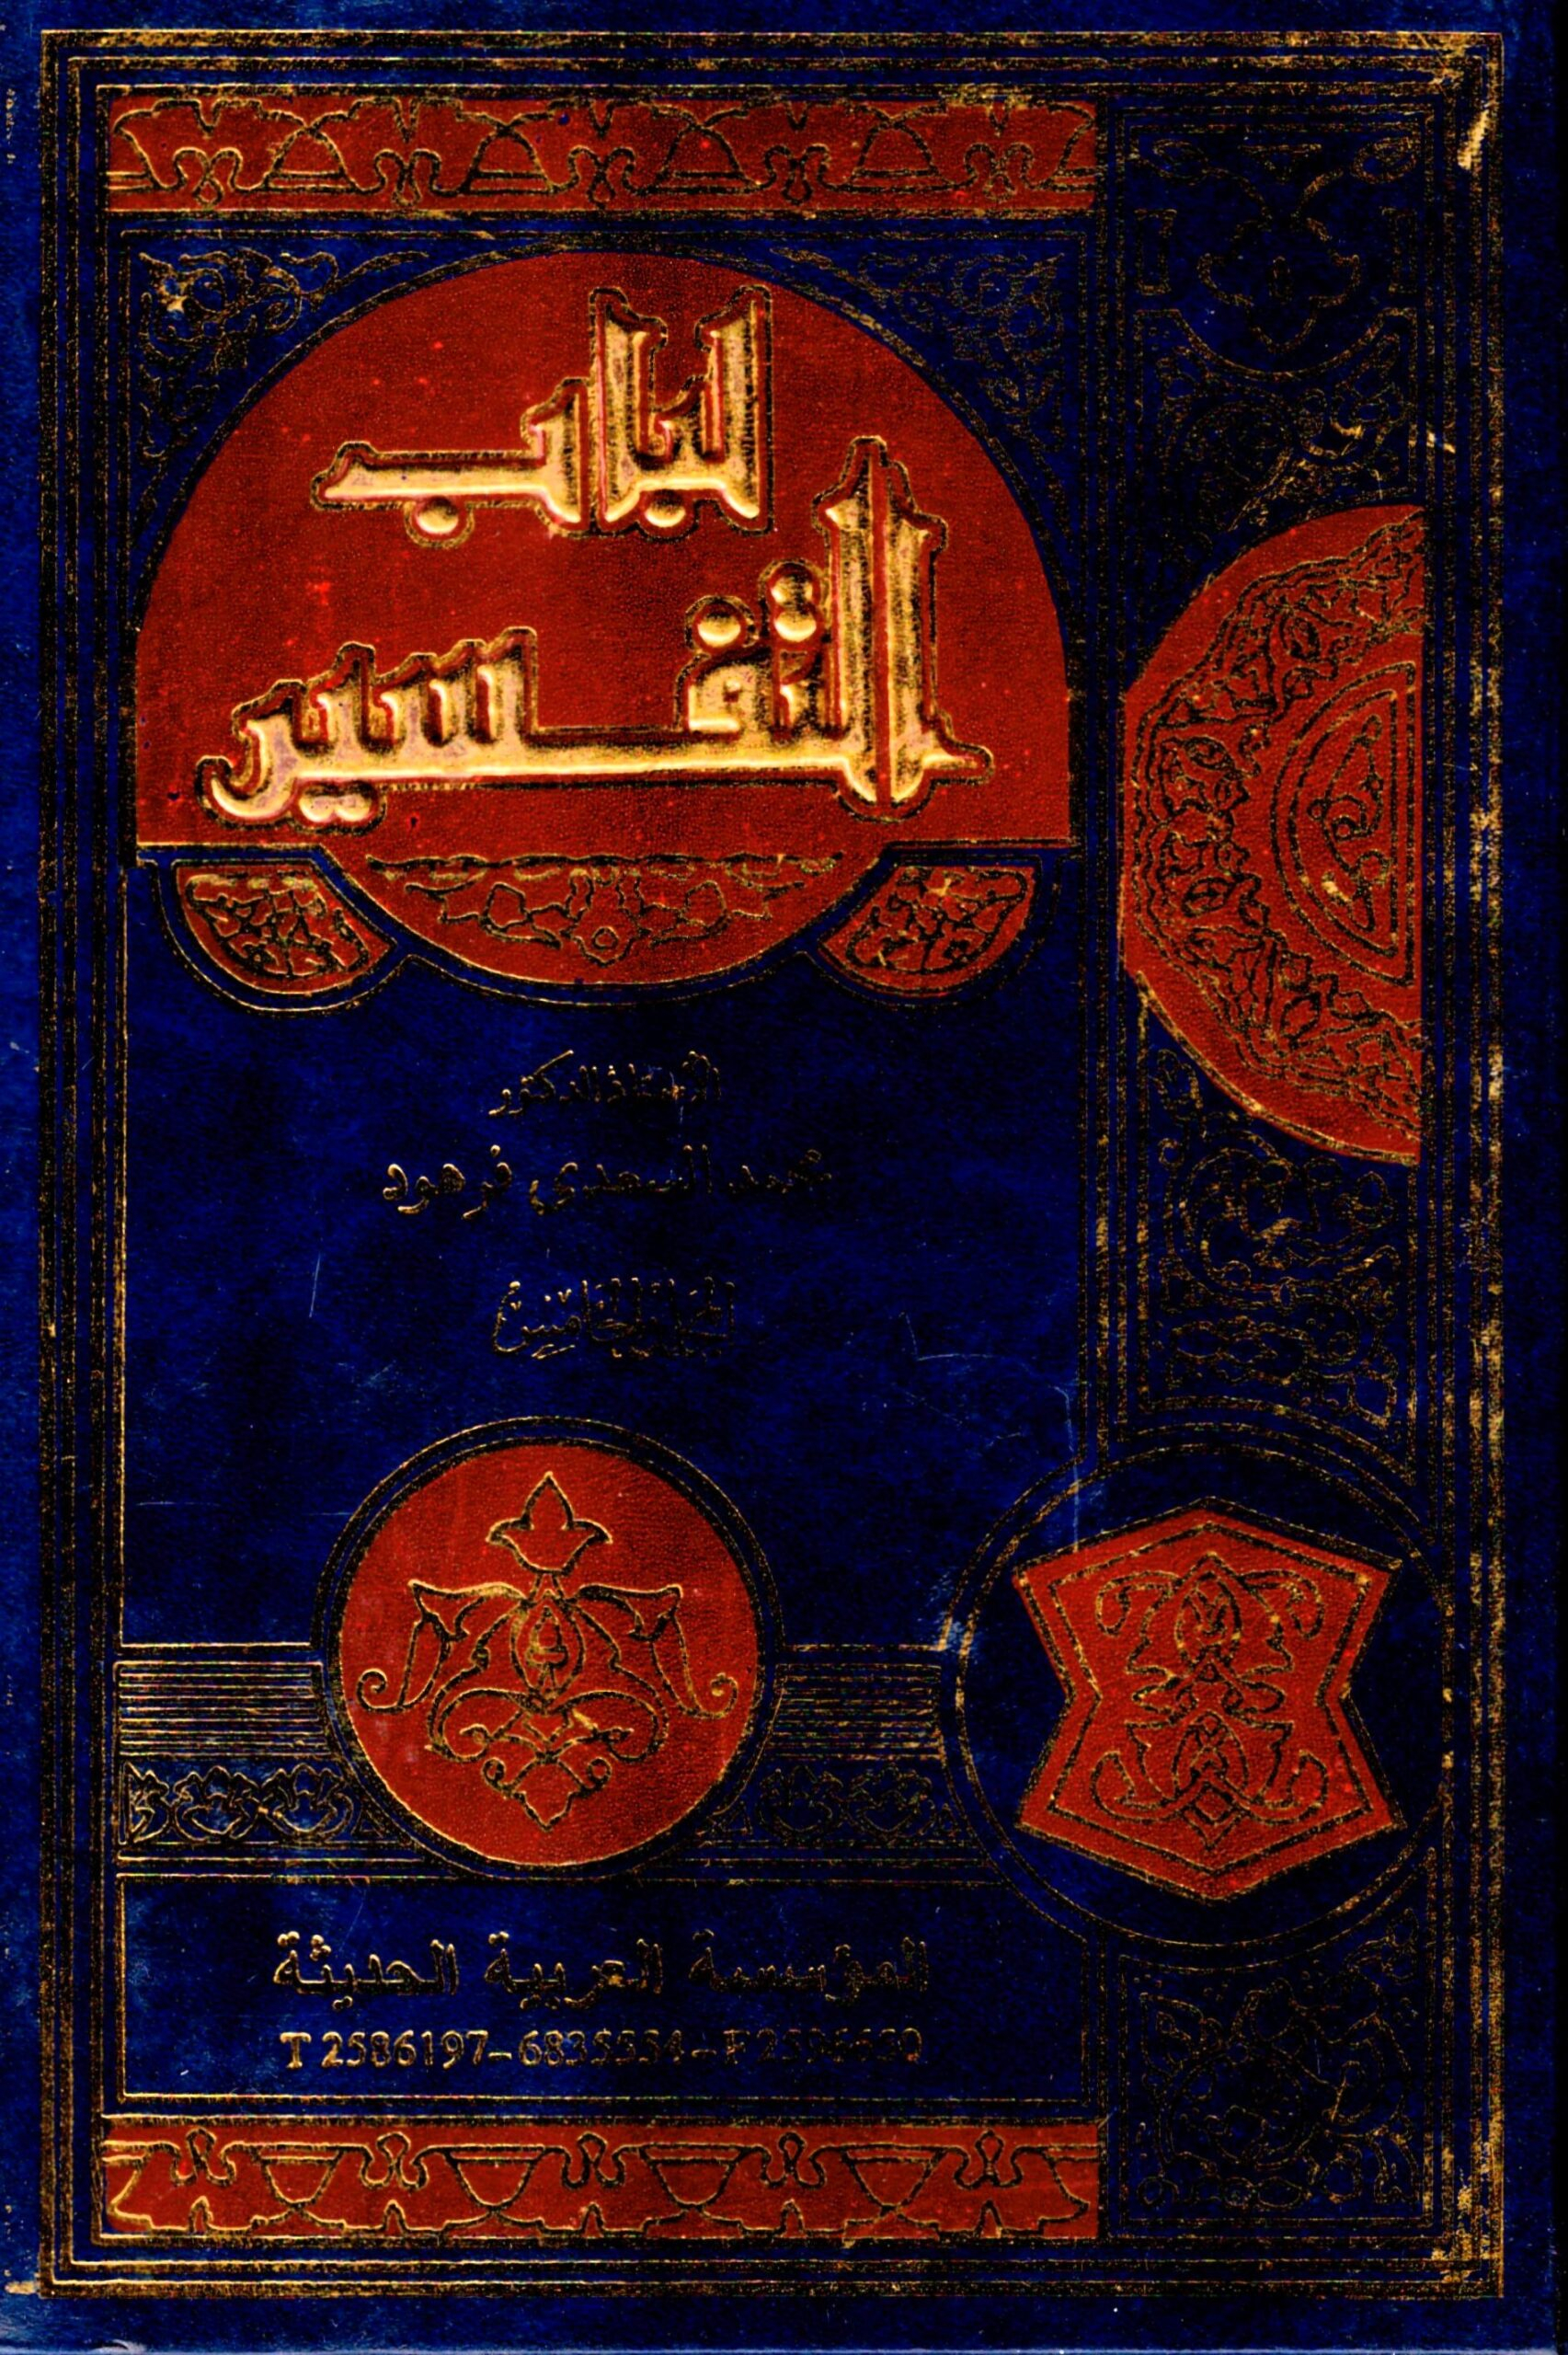 لباب
التفسير
الأستاذ الدكتور
محمد السعدي فرهود
المجلد الخامس
المؤسسة العربية الحديثة
T 2586197-6835554-F